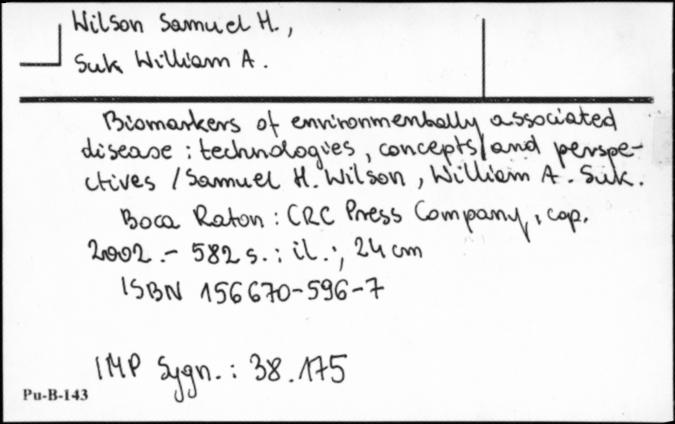 Wilson Samuel H.,
Suk William A.
Biomarkers of environmentally associated
disease : technologies, concepts, and perspe-
ctives / Samuel H. Wilson, William A. Suk.
Boca Raton : CRC Press Company, cop.
2002 .- 582 s. : il. ; 24 cm
ISBN 156670-596-7
IMP Sygn. : 38.175
Pu-B-143